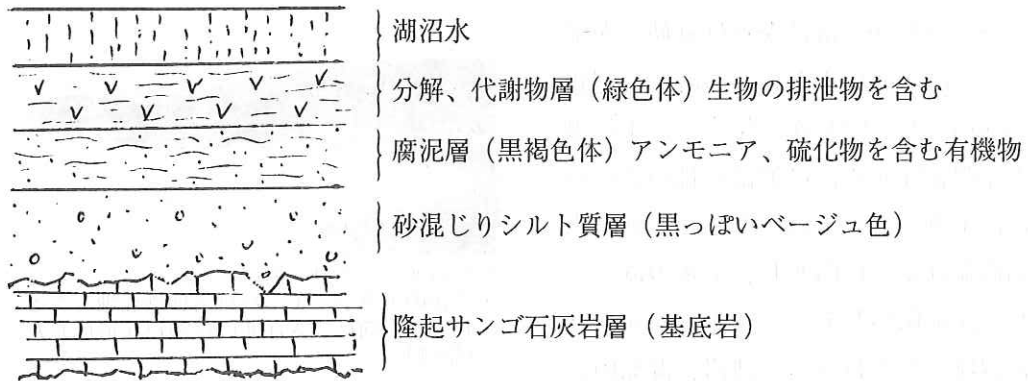 湖沼水
分解、代謝物層（緑色体）生物の排泄物を含む
腐泥層（黒褐色体）アンモニア、硫化物を含む有機物
砂混じりシルト質層（黒っぽいベージュ色）
隆起サンゴ石灰岩層（基底岩）